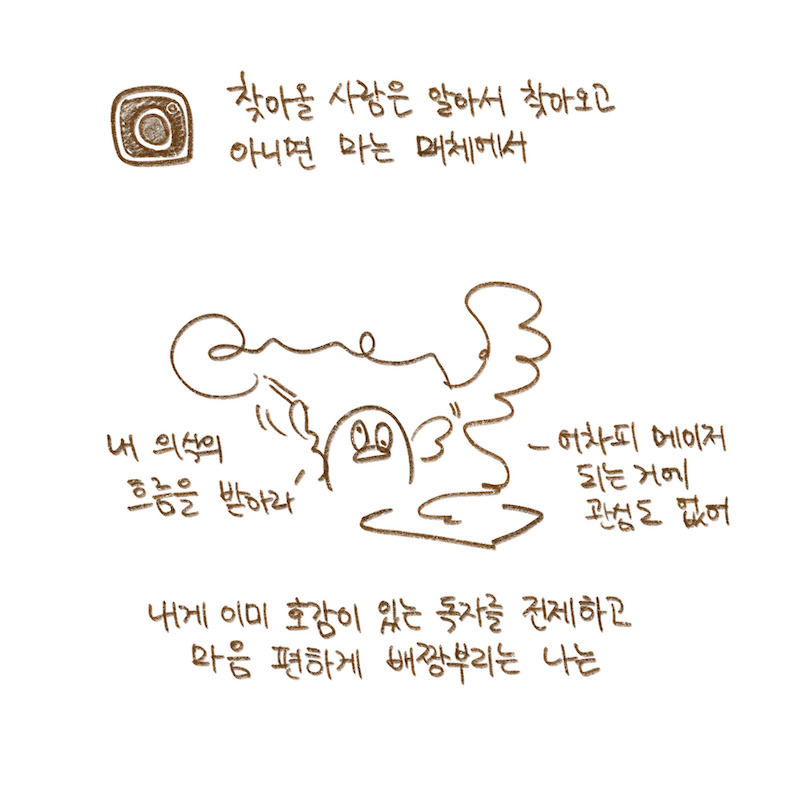 찾아올 사람은 알아서 찾아오고
아니면 마는 매체에서
내 의식의
흐름을 받아라
어차피 메이저
되는 거에
관심도 없어
내게 이미 호감이 있는 독자를 전제하고
마음 편하게 배짱부리는 나는